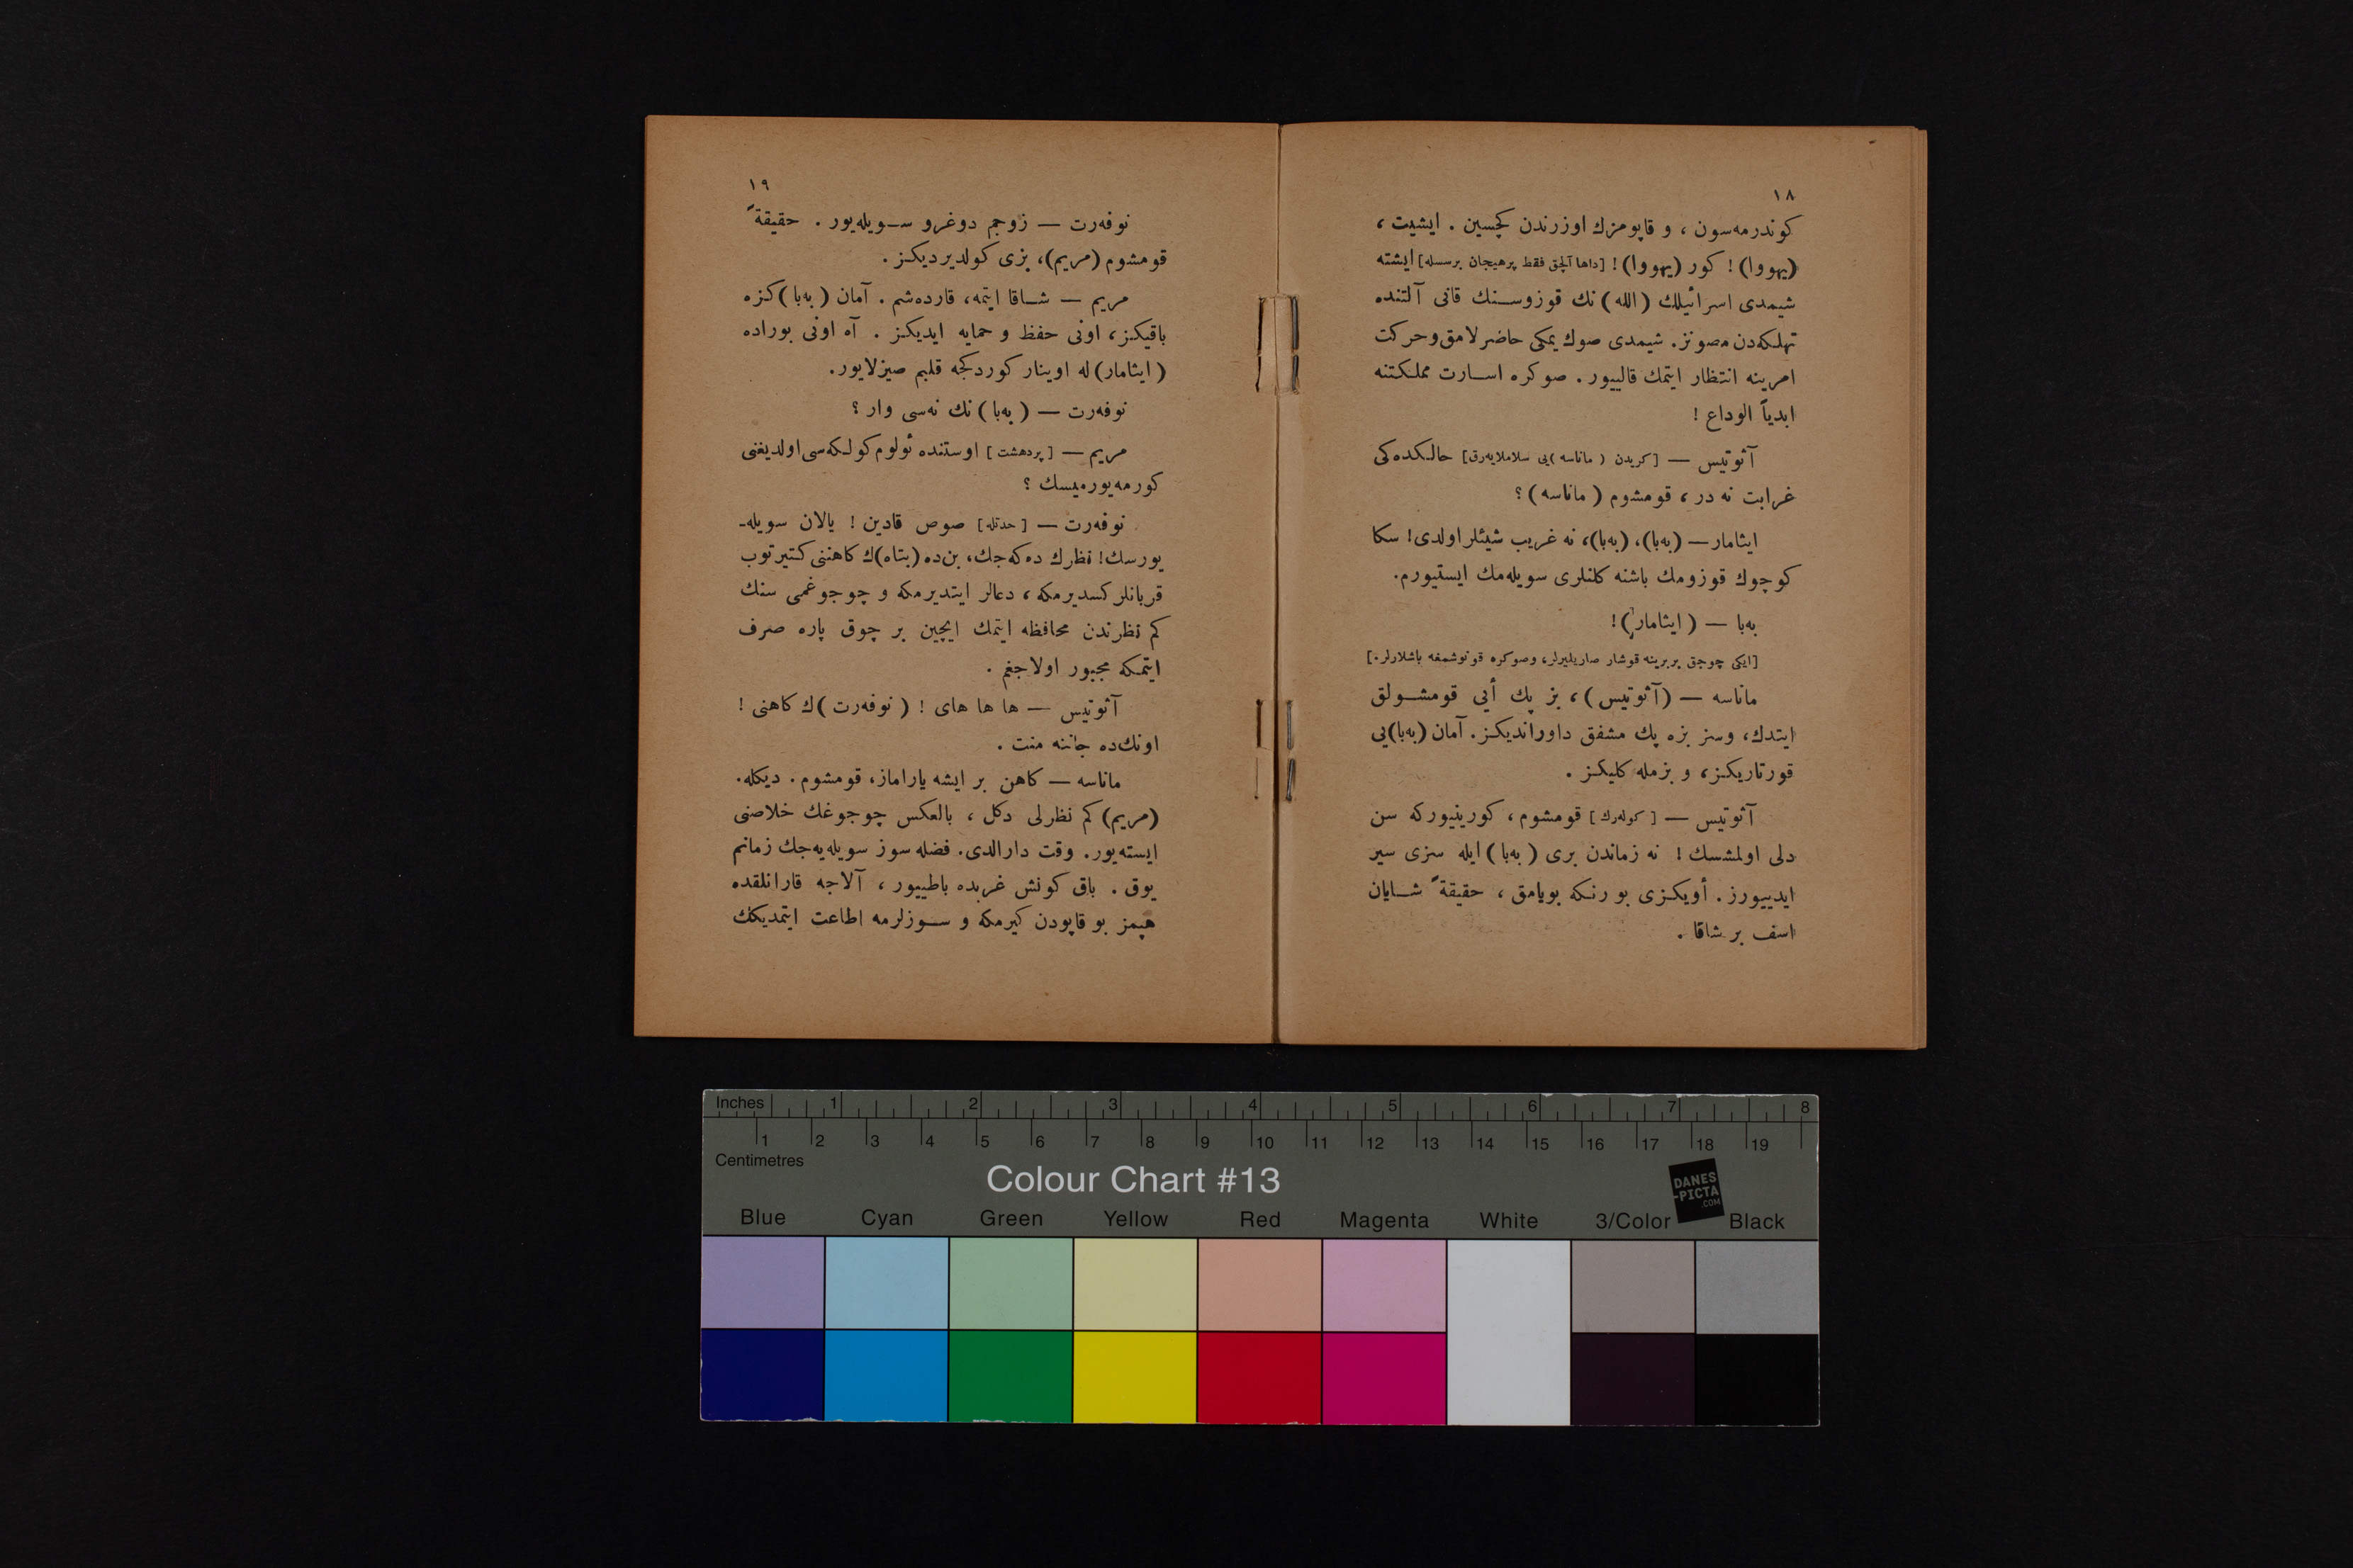 ١٨
كوندرمه‌سون ، و قاپومزك اوزرندن كچسين . ايشيت ،
(يهووا) ! كور (يهووا) ! [داها آلچق فقط پرهيجان برسسله] ايشته
شيمدی اسرائيللك (الله) نك قوزوسـنك قانی آلتنده
تهلكه‌دن مصونز. شيمدی صوك يمكی حاضرلامق وحركت
امرينه انتظار ايتمك قاليیور . صوكره اسـارت مملكتنه
ابدياً الوداع !
آثوتيس — [كريدن (ماناسه)يی سلاملايه‌رق] حالكده‌كی
غرابت نه در ، قومشوم (ماناسه) ؟
ايثامار — (به‌با)، (به‌با)، نه غريب شيئلر اولدی! سكا
كوچوك قوزومك باشنه كلنلری سويله‌مك ايستيورم.
به‌با — (ايثامار)!
[ايكی چوجق بربرينه قوشار صاريليرلر، وصوكره قونوشمغه باشلارلر.]
ماناسه — (آثوتيس) ، بز پك أیی قومشـولق
ايتدك، وسز بزه پك مشفق داورانديكز. آمان (به‌با)يی
قورتاريكز، و بزمله كليكز .
آثوتيس — [كوله‌رك] قومشوم ، كورينيوركه سن
دلی اولمشسك ! نه زماندن بری (به‌با) ايله سزی سير
ايدييورز . أويكزی بو رنكه بويامق ، حقيقةً شـايان
اسف بر شاقا .
١٩
نوفه‌رت — زوجم دوغرو سـويله‌يور . حقيقةً
قومشوم (مريم)، بزی كولديرديكز .
مريم — شـاقا ايتمه، قارده‌شم . آمان (به‌با)كزه
باقيكز، اونی حفظ و حمايه ايديكز . آه اونی بوراده
(ايثامار)له اوينار كوردكجه قلبم صيزلايور.
نوفه‌رت — (به‌با) نك نه‌سی وار ؟
مريم — [پردهشت] اوستنده ئولوم كولكه‌سی اولديغنی
كورمه‌يورميسك ؟
نوفه‌رت — [حدتله] صوص قادين ! يالان سويله‌ـ
يورسك! نظرك ده‌كه‌جك، بن‌ده (بتاه)ك كاهننی كتيرتوب
قربانلر كسديرمكه ، دعالر ايتديرمكه و چوجوغمی سنك
كم نظرندن محافظه ايتمك ايچين بر چوق پاره صرف
ايتمكه مجبور اولاجغم .
آثوتيس — ها ها های ! (نوفه‌رت)ك كاهنی !
اونك‌ده جاننه منت .
ماناسه — كاهن بر ايشه ياراماز، قومشوم . ديكله.
(مريم) كم نظرلی دكل ، بالعكس چوجوغك خلاصنی
ايسته‌يور. وقت دارالدی. فضله سوز سويله‌يه‌جك زمانم
يوق . باق كونش غربده باطييور ، آلاجه قارانلقده
هپمز بو قاپودن كيرمكه و سـوزلرمه اطاعت ايتمديكك
Inches 1 2 3 4 5 6 7 8
1 2 3 4 5 6 7 8 9 10 11 12 13 14 15 16 17 18 19
Centimetres
Colour Chart #13
DANES
-PICTA
.COM
Blue Cyan Green Yellow Red Magenta White 3/Color Black